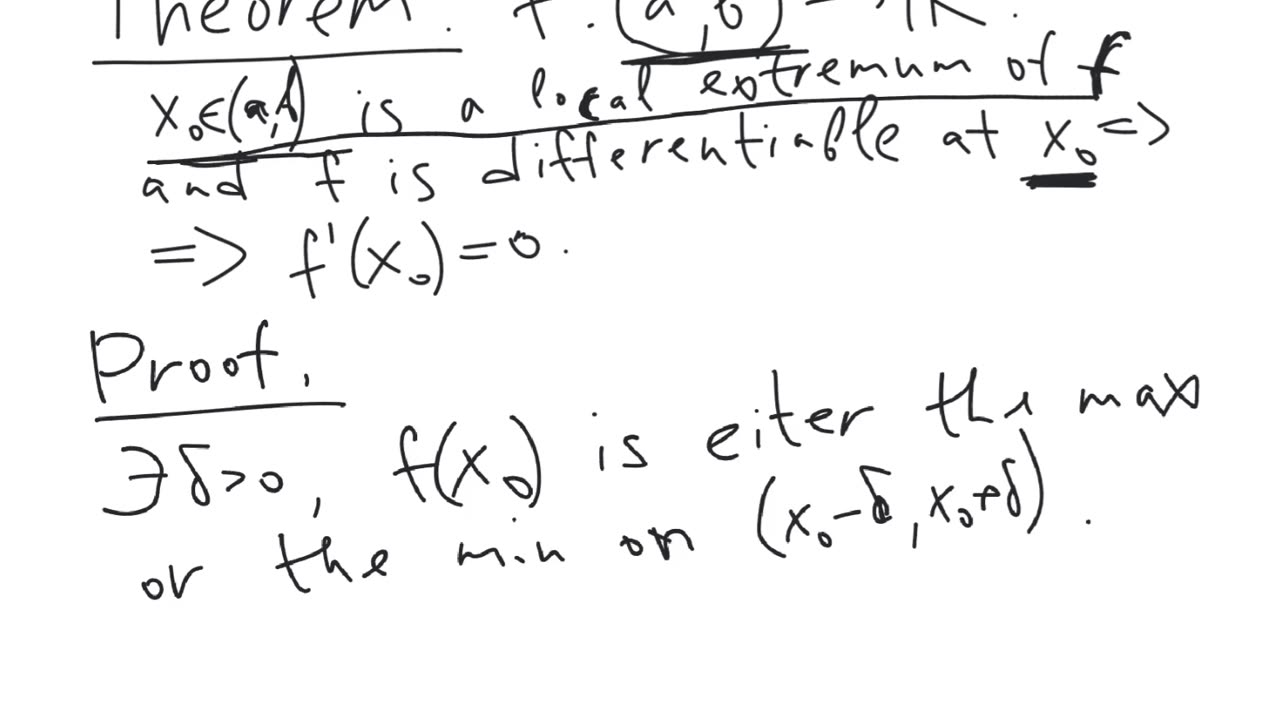 Theorem. f: (a,b) → ℝ.
x₀∈(a,b) is a local extremum of f
and f is differentiable at x₀ =>
=> f'(x₀)=0.
Proof.
∃δ>0, f(x₀) is eiter the max
or the min on (x₀-δ, x₀+δ).